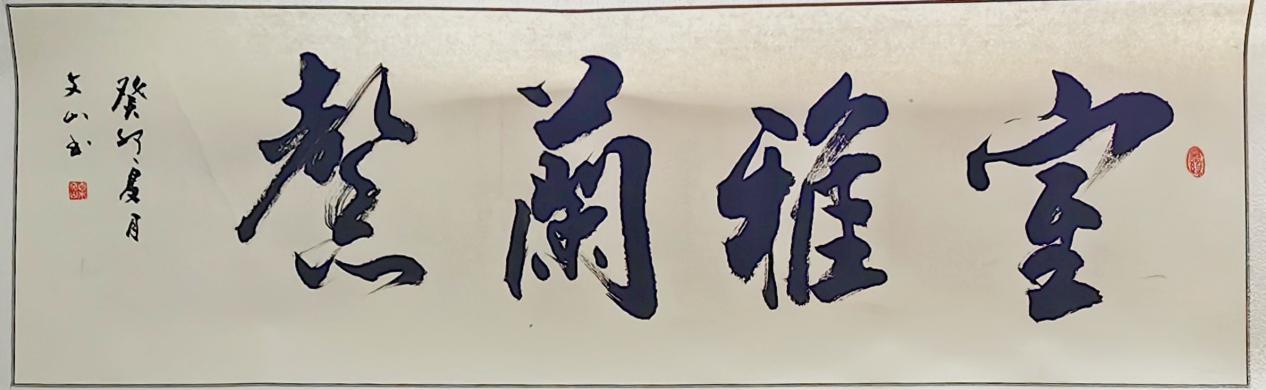 室雅蘭馨
癸卯夏月
文山书